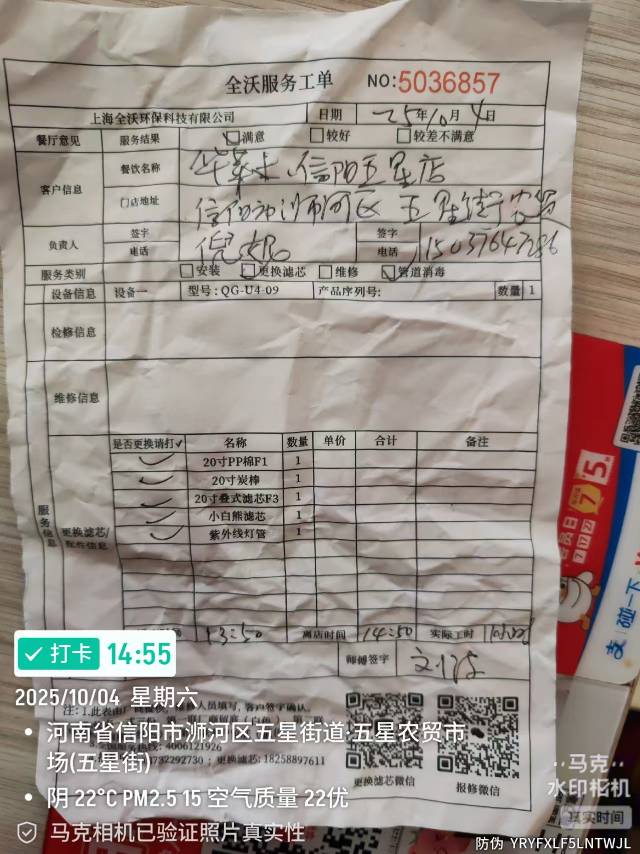 全沃服务工单 NO:5036857
上海全沃环保科技有限公司 日期 25年10月4日
餐厅意见 服务结果 满意 较好 较差不满意
客户信息 餐饮名称 华莱士 信阳五星店
门店地址 信阳市浉河区五星街农贸
负责人 签字 签字
电话 电话 15037647286
服务类别 安装 更换滤芯 维修 管道消毒
设备信息 设备一 型号:QG-U4-09 产品序列号: 数量 1
检修信息
维修信息
服务信息
更换滤芯/配件信息
是否更换请打✓ 名称 数量 单价 合计 备注
✓ 20寸PP棉F1 1
✓ 20寸炭棒 1
✓ 20寸叠式滤芯F3 1
✓ 小白熊滤芯 1
✓ 紫外线灯管 1
13:50 离店时间 14:50 实际工时
师傅签字
注:1.此表由
4006121926
0732292730 ; 更换滤芯:18258897611
更换滤芯微信 报修微信
打卡 14:55
2025/10/04 星期六
河南省信阳市浉河区五星街道·五星农贸市
场(五星街)
阴 22°C PM2.5 15 空气质量 22优
马克相机已验证照片真实性
马克
水印相机
真实时间
防伪 YRYFXLF5LNTWJL
5
7
碰一下
支